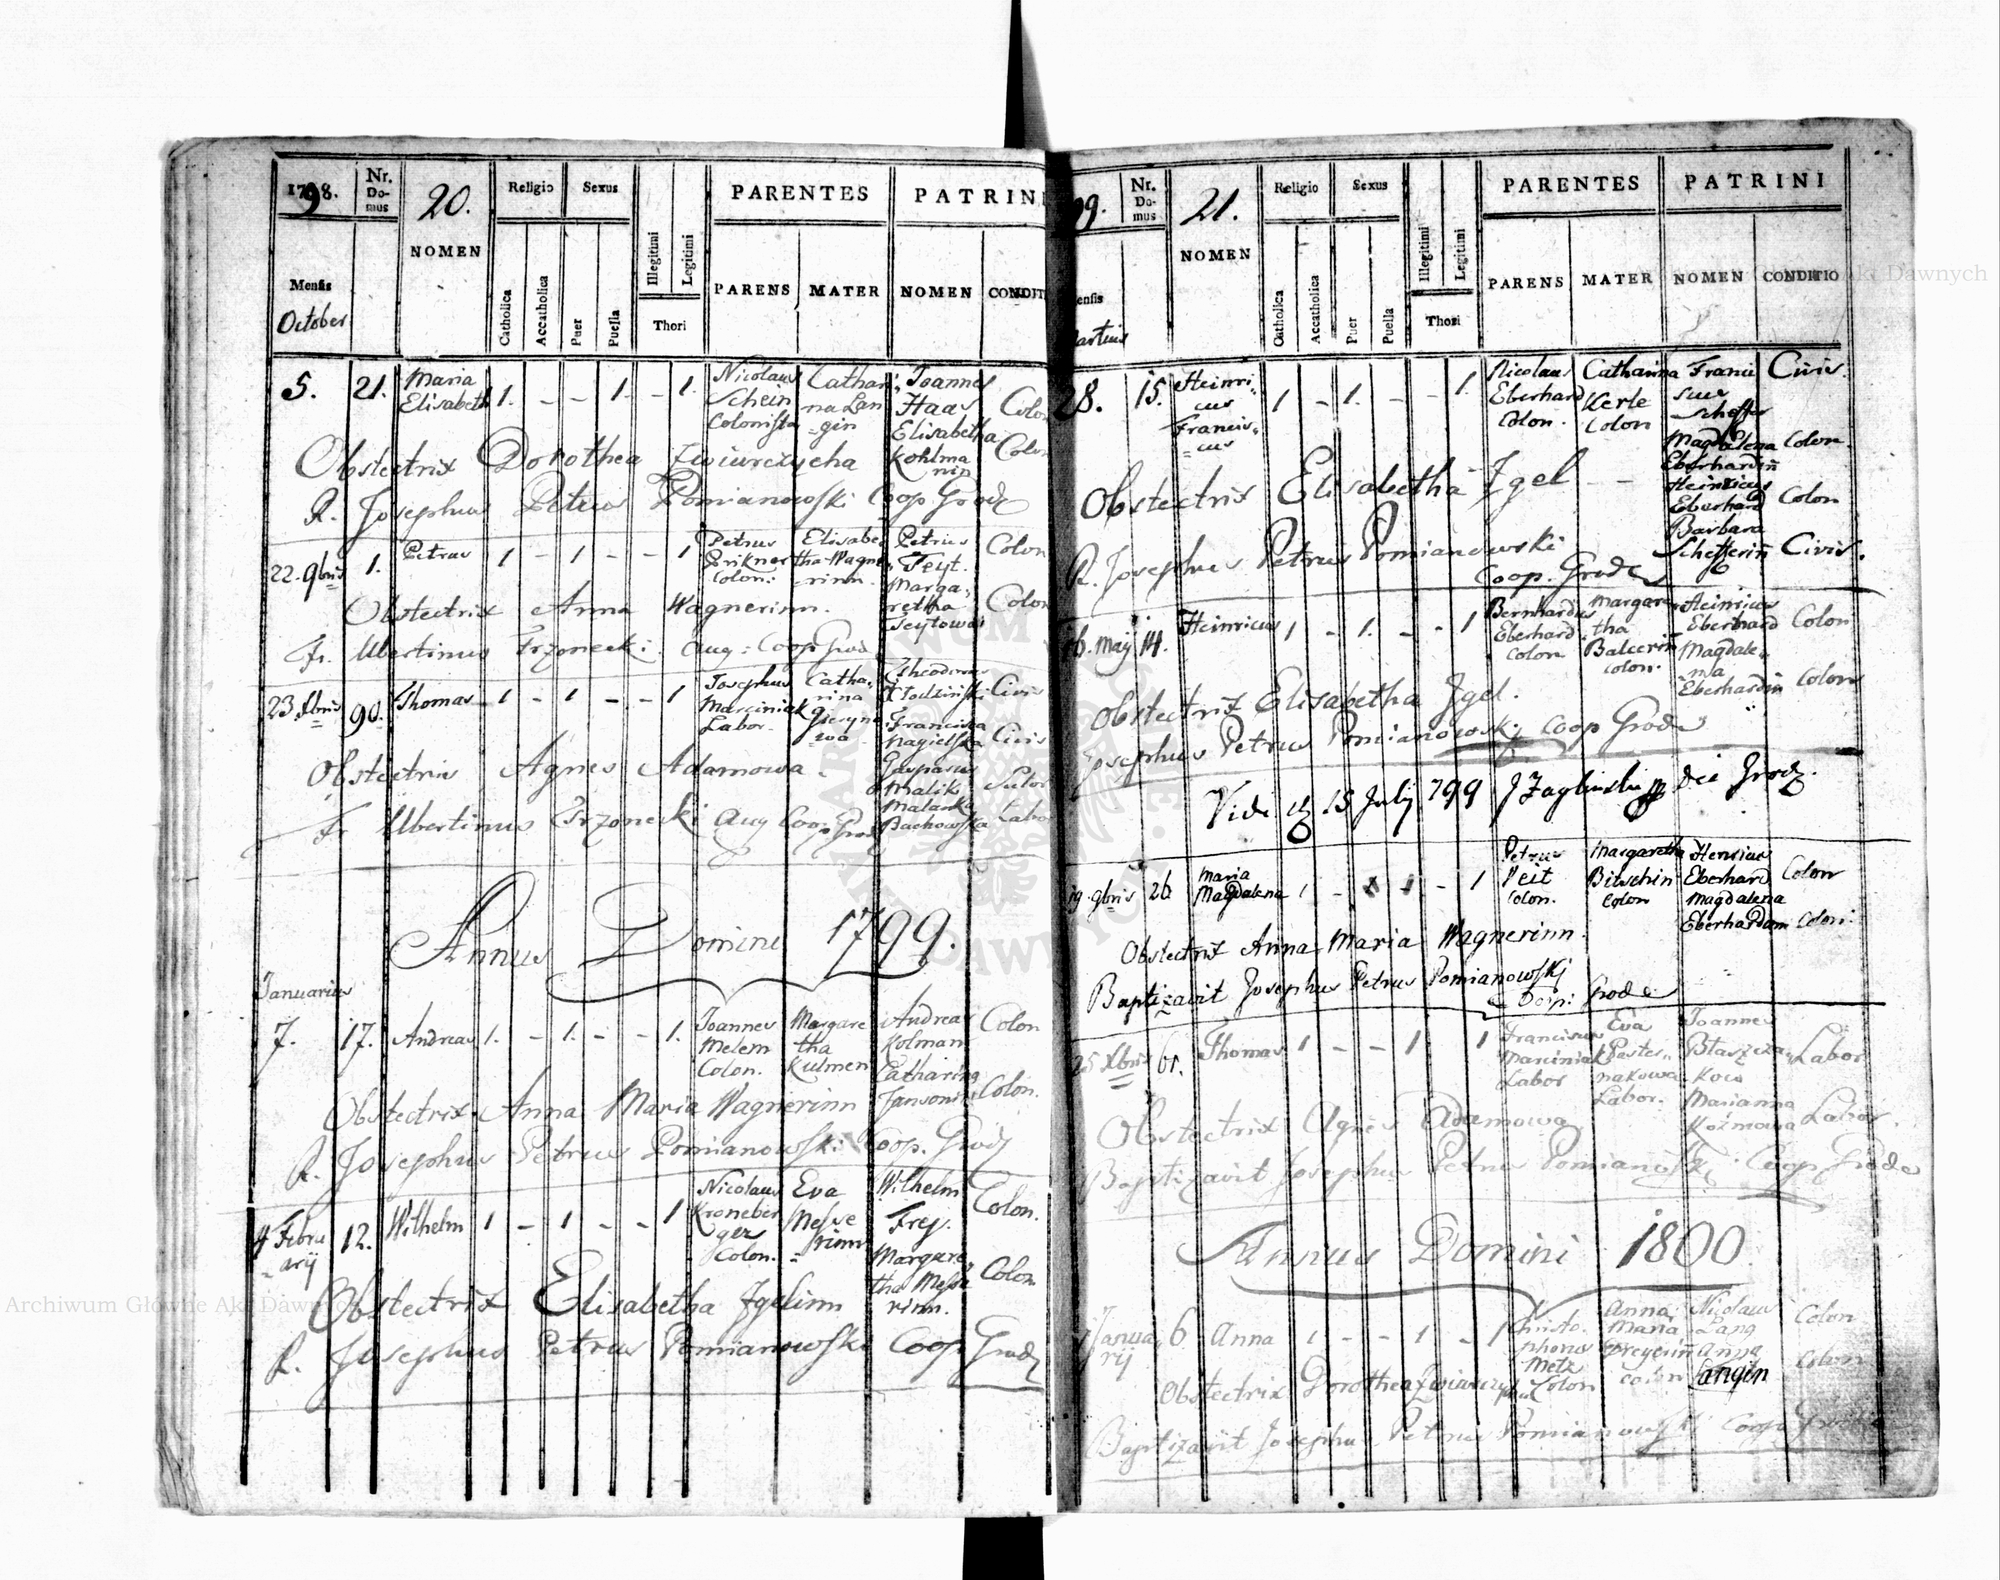 1798.
Nr. Domus
20.
NOMEN
Religio
Sexus
PARENTES
PATRINI
Mensis
October
Catholica
Accatholica
Puer
Puella
Illegitimi
Legitimi
Thori
PARENS
MATER
NOMEN
CONDIT
5. 21. Maria Elisabeth 1. - - 1. - 1. Nicolaus Schein Colonista
Catharina Langin
Joannes Haas Colon
Elisabetha Kohlmanin Colon
Obstectrix Dorothea Zwiurczycha
R. Josephus Petrus Pomianowski Coop Grodz
22. 9bris 1. Petrus 1 - 1 - - 1 Petrus Prikner Colon:
Elisabetha Wagnerinn.
Petrus Teyt. Colon
Margaretha Teytowa Colon
Obstectrix Anna Wagnerinn.
Fr. Ubertinus Trzonecki Aug: Coop Grod
23 Xbris 90. Thomas 1 - 1 - - 1 Josephus Marciniak Labor.
Catharina
Theodorus Civis
Francisca Nagielska Civis
Gasparus Malik Sutor
Malanka Bachowska Labor
Obstectrix Agnes Adamowa.
Fr Ubertinus Trzonecki Aug Coop Grod
Annus Domini 1799.
Januarius
7. 17. Andreas 1. - 1. - - 1. Joannes Melem Colon.
Margaretha Kulmen
Andreas Kolman Colon
Catharina Jansoni Colon.
Obstectrix Anna Maria Wagnerinn
R. Josephus Petrus Pomianowski Coop. Grodz
4 Februarij 12. Wilhelm 1 - 1 - - 1 Nicolaus Kroneberger Colon.
Eva
Wilhelm Frej. Colon.
Margaretha Colon
Obstectrix Elisabetha Jgelinn
R. Josephus Petrus Pomianowski Coop Grodz
99.
Nr. Domus
21.
NOMEN
Religio
Sexus
PARENTES
PATRINI
ensis
artius
Catholica
Accatholica
Puer
Puella
Illegitimi
Legitimi
Thori
PARENS
MATER
NOMEN
CONDITIO
28. 15. Heinricus Franciscus 1 - 1. - - 1 Nicolaus Eberhard Colon.
Catharina Kerle Colon
Civis.
Magdalena Eberhardin Colon.
Heinricus Eberhard Colon
Barbara Schefferin Civis.
Obstectrix Elisabetha Jgel - -
R. Josephus Petrus Pomianowski
Coop. Grodz
Maij 14. Heinricus 1 - 1. - - 1 Bernhardus Eberhard Colon
Margaretha Balcerin colon.
Heinricus Eberhard Colon
Magdalena Eberhardin Colon
Obstectrix Elisabetha Jgel.
Josephus Petrus Pomianowski Coop Grodz
Vidi 15 Julij 799
19. 9bris 26 Maria Magdalena 1 - - 1 Petrus Veit Colon.
Margaretha Bitschin Colon
Henricus Eberhard Colon
Magdalena Eberhardam Colon:
Obstectrix Anna Maria Wagnerinn.
Baptizavit Josephus Petrus Pomianowski
Coop: Grodz
25 Xbris 61. Thomas 1 - - 1 1 Franciscus Marciniak Labor
Eva Pasternakowa Labor.
Joannes Labor
Marianna Kozmowa Labor.
Obstectrix Agnes Adamowa
Baptizavit Josephus Petrus Pomianowski Coop Grodz
Annus Domini 1800
Januarij 6 Anna 1 - - 1 - 1 Christophorus Metz Colon
Anna Maria
Nicolaus Lang Colon
Anna Langin Colon
Obstectrix Dorothea
Baptizavit Josephus Petrus Pomianowski Coop
Archiwum Główne Akt Dawnych
Akt Dawnych
ARCHIWUM GŁÓWNE AKT DAWNYCH